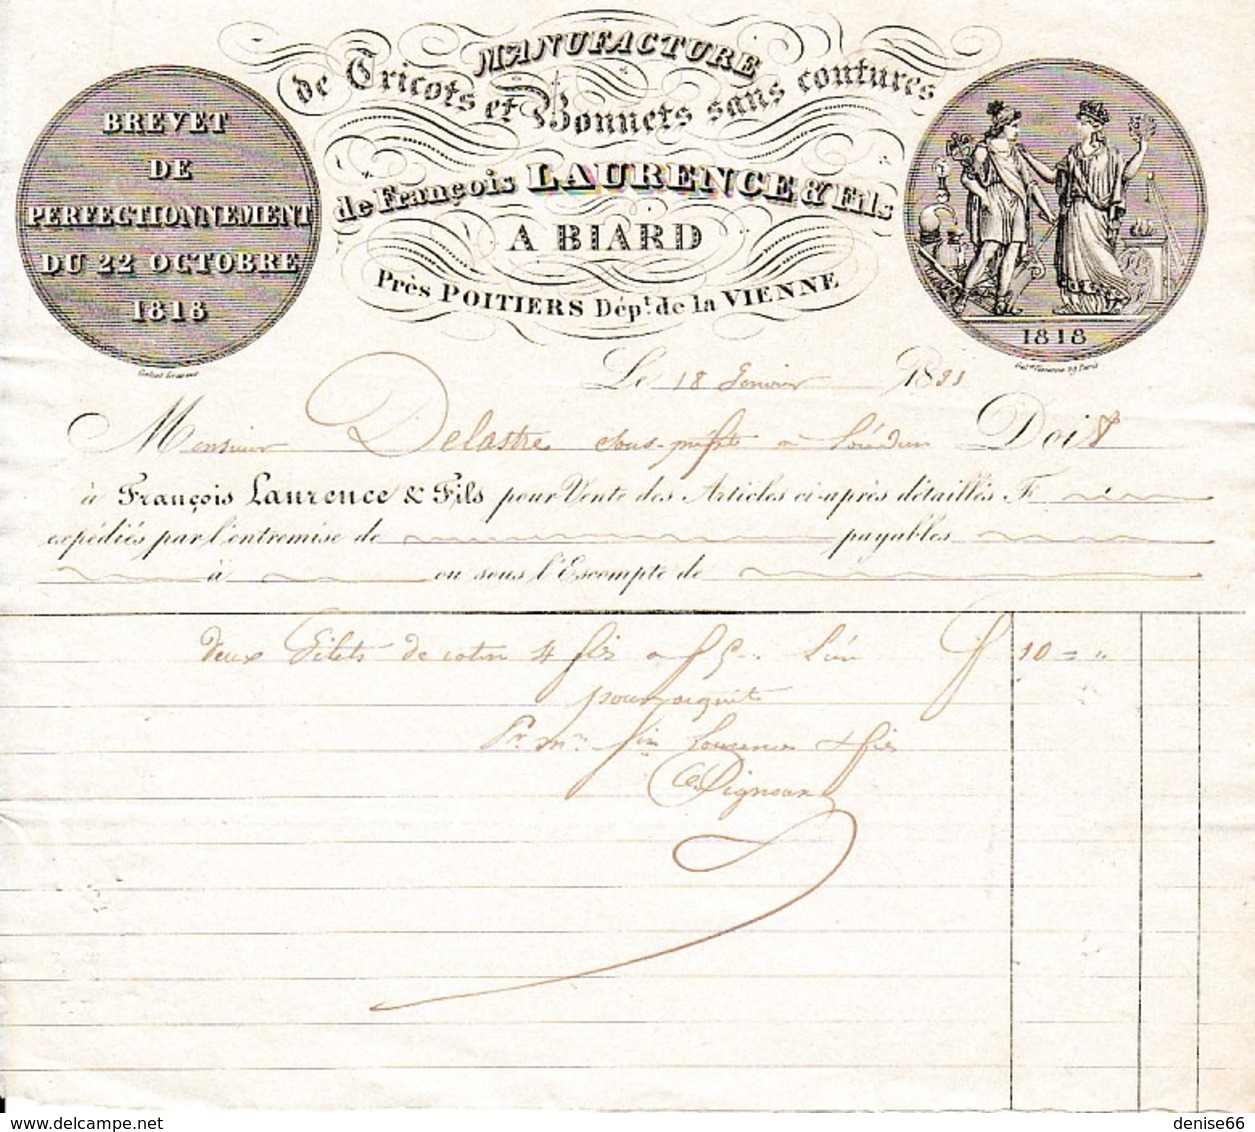 MANUFACTURE
de Tricots et Bonnets sans coutures
de François LAURENCE & Fils
A BIARD
Près POITIERS Dép.t de la VIENNE
BREVET
DE
PERFECTIONNEMENT
DU 22 OCTOBRE
1818
1818
Le 18 Janvier 18
Monsieur Delastre sous-préfet a Loudun Doit
à François Laurence & Fils pour Vente des Articles ci-après détaillés F
expédiés par l'entremise de payables
à ou sous l'Escompte de
deux Gilets de coton 4 fils a f 5 " L'un f 10 = "
pour acquit
Pr. Mr. Laurence & fils
denise66